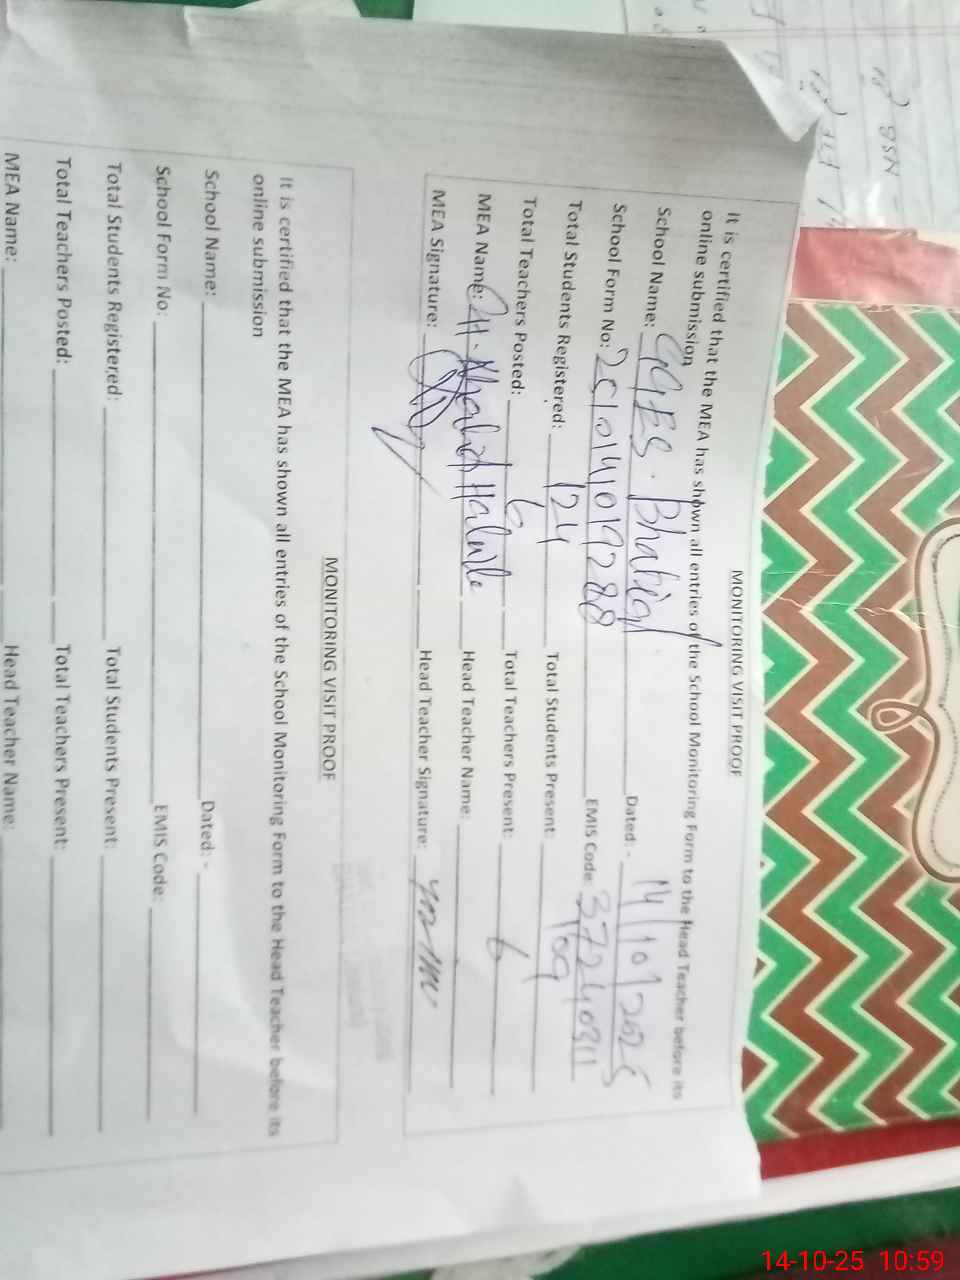 MONITORING VISIT PROOF
It is certified that the MEA has shown all entries of the School Monitoring Form to the Head Teacher before its
online submission
School Name: GGES. Bhabial Dated: - 14/10/2025
School Form No: 251014019288 EMIS Code: 37240311
Total Students Registered: 124 Total Students Present: 109
Total Teachers Posted: 6 Total Teachers Present: 6
MEA Name: Head Teacher Name:
MEA Signature: Head Teacher Signature:
MONITORING VISIT PROOF
It is certified that the MEA has shown all entries of the School Monitoring Form to the Head Teacher before its
online submission
School Name: Dated: -
School Form No: EMIS Code:
Total Students Registered: Total Students Present:
Total Teachers Posted: Total Teachers Present:
MEA Name: Head Teacher Name:
14-10-25 10:59